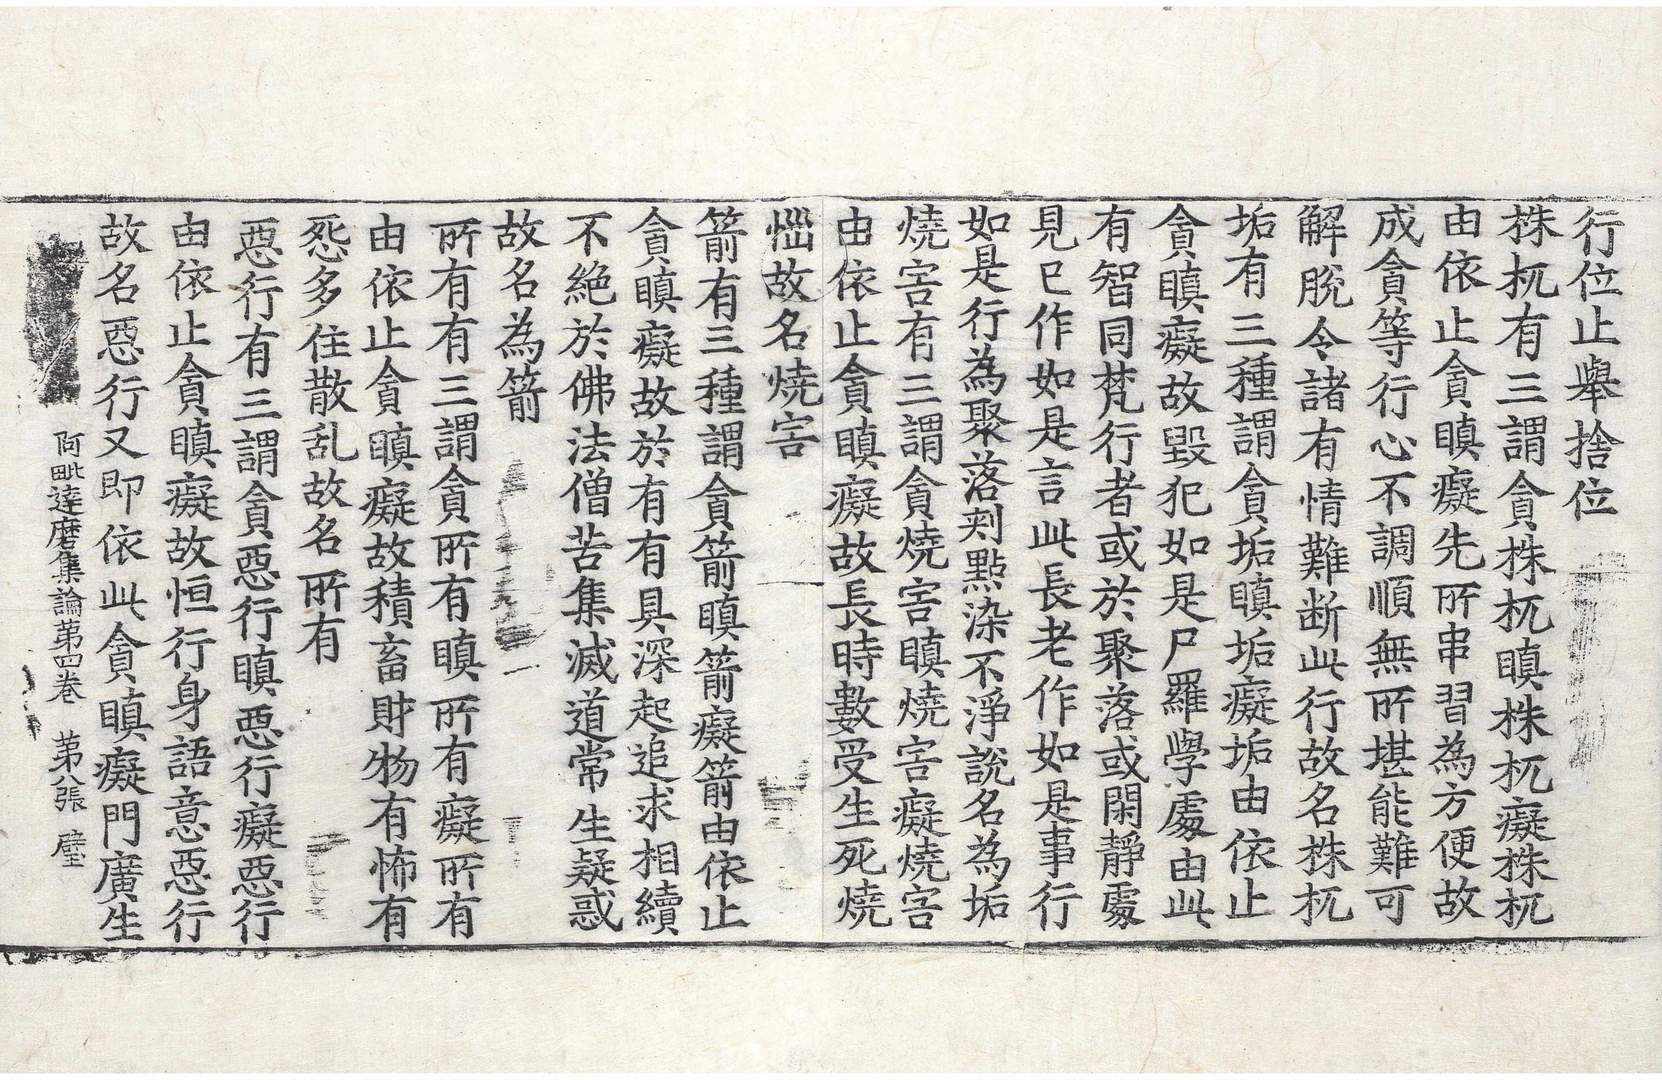 行位止舉捨位
株杌有三謂貪株杌瞋株杌癡株杌
由依止貪瞋癡先所串習為方便故
成貪等行心不調順無所堪能難可
解脫令諸有情難断此行故名株杌
垢有三種謂貪垢瞋垢癡垢由依止
貪瞋癡故毀犯如是尸羅學處由此
有智同梵行者或於聚落或閑靜處
見已作如是言此長老作如是事行
如是行為聚落刾點染不淨說名為垢
燒害有三謂貪燒害瞋燒害癡燒害
由依止貪瞋癡故長時數受生死燒
惱故名燒害
箭有三種謂貪箭瞋箭癡箭由依止
貪瞋癡故於有有具深起追求相續
不絕於佛法僧苦集滅道常生疑惑
故名為箭
所有有三謂貪所有瞋所有癡所有
由依止貪瞋癡故積畜財物有怖有
怨多住散乱故名所有
惡行有三謂貪惡行瞋惡行癡惡行
由依止貪瞋癡故恒行身語意惡行
故名惡行又即依此貪瞋癡門廣生
阿毗達磨集論苐四卷 苐八張 璧